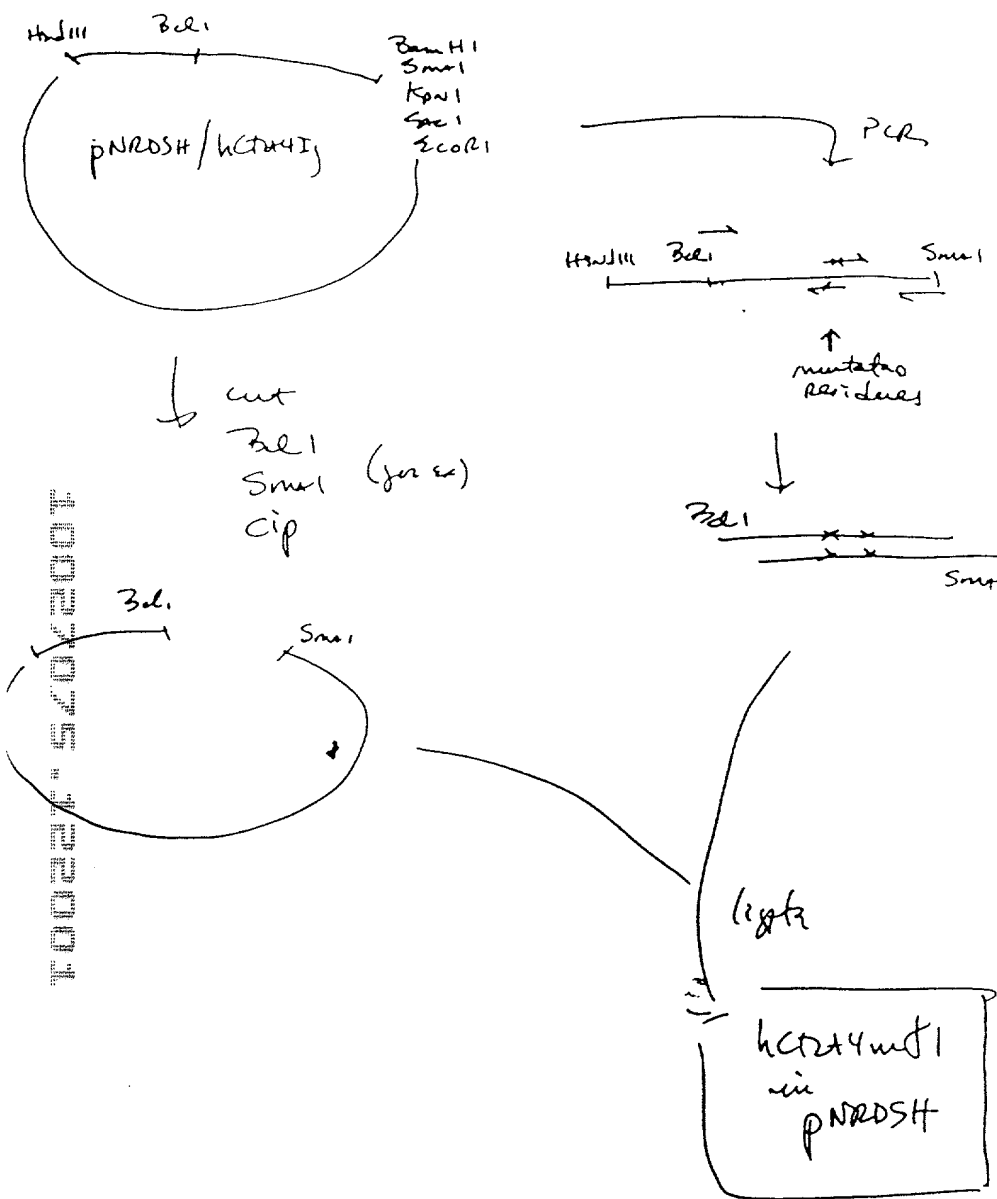 HindIII
Bcl1
BamH1
Sma1
Kpn1
Sac1
EcoR1
pNRDSH/hCTLA4Ig
PCR
HindIII
Bcl1
Sma1
mutated
residues
cut
Bcl1
Sma1 (for ex)
cip
Bcl1
Sma
Bcl1
Sma1
ligate
hCTLA4mt1
in
pNRDSH
10027075.122001